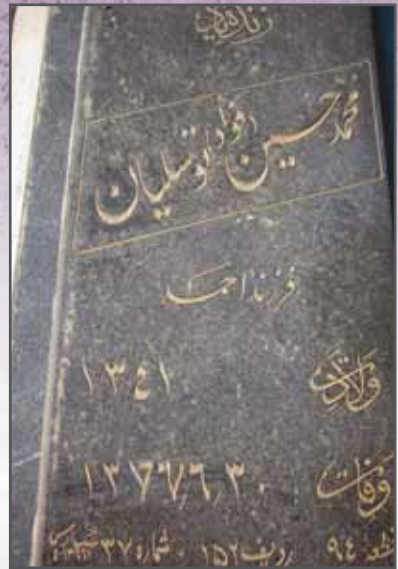 زنده یاد
محمد حسین (فواد) توسلیان
فرزند احمد
ولادت ۱۳٤۱
وفات
قطعه ۹٤ ردیف ۱۵۲ شماره ۳۷